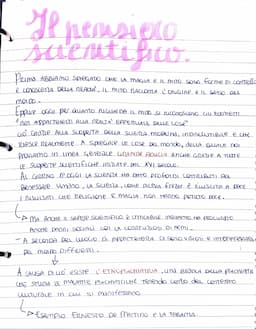 Il pensiero
scientifico.
Prima abbiamo spiegato che la magia e il mito sono forme di controllo
e conoscenza della realtà, il mito racconta l'origine e il senso del
mondo.
Eppure oggi per quanto riguarda il mito si racchiudono gli elementi
"non appartenenti alla realtà effettuale delle cose"
ciò grazie alla scoperta della scienza moderna, che
riesce realmente a spiegare le cose del mondo, della quale noi
proviamo in linea generale grande fiducia anche grazie a tutte
le scoperte scientifiche iniziate nel XVI secolo.
Al giorno d'oggi la scienza ha dato profondi contributi per
benessere umano, la scienza, come altra forza è riuscita a dare
i risultati che religione e magia non hanno potuto dare.
Ma anche il sapere scientifico è criticabile infatti ha procurato
anche danni sociali con la costruzione di armi.
- A seconda del luogo di appartenenza la scienza viene interpretata
in modo differente.
A causa di ciò esiste l'etnopsichiatria, una branca della psichiatria
che studia le malattie psichiatriche tenendo conto del contesto
culturale in cui si manifestano.
Esempio: Ernesto De Martino e la terapia